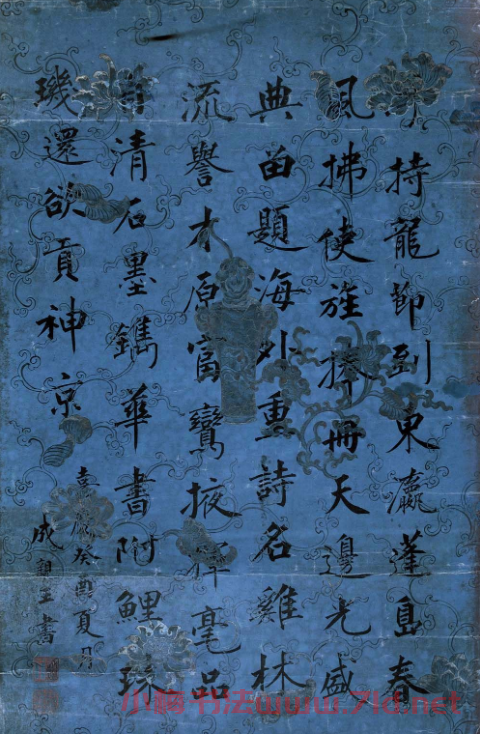 持龍節到東瀛蓬島春
風拂使旌捧冊天邊光盛
典留題海外重詩名雞林
流譽才原富鸞掖揮毫品
自清石墨鐫華書附鯉珠
璣還欲貢神京
嘉慶癸酉夏月
成親王書
小梅书法www.7ld.net